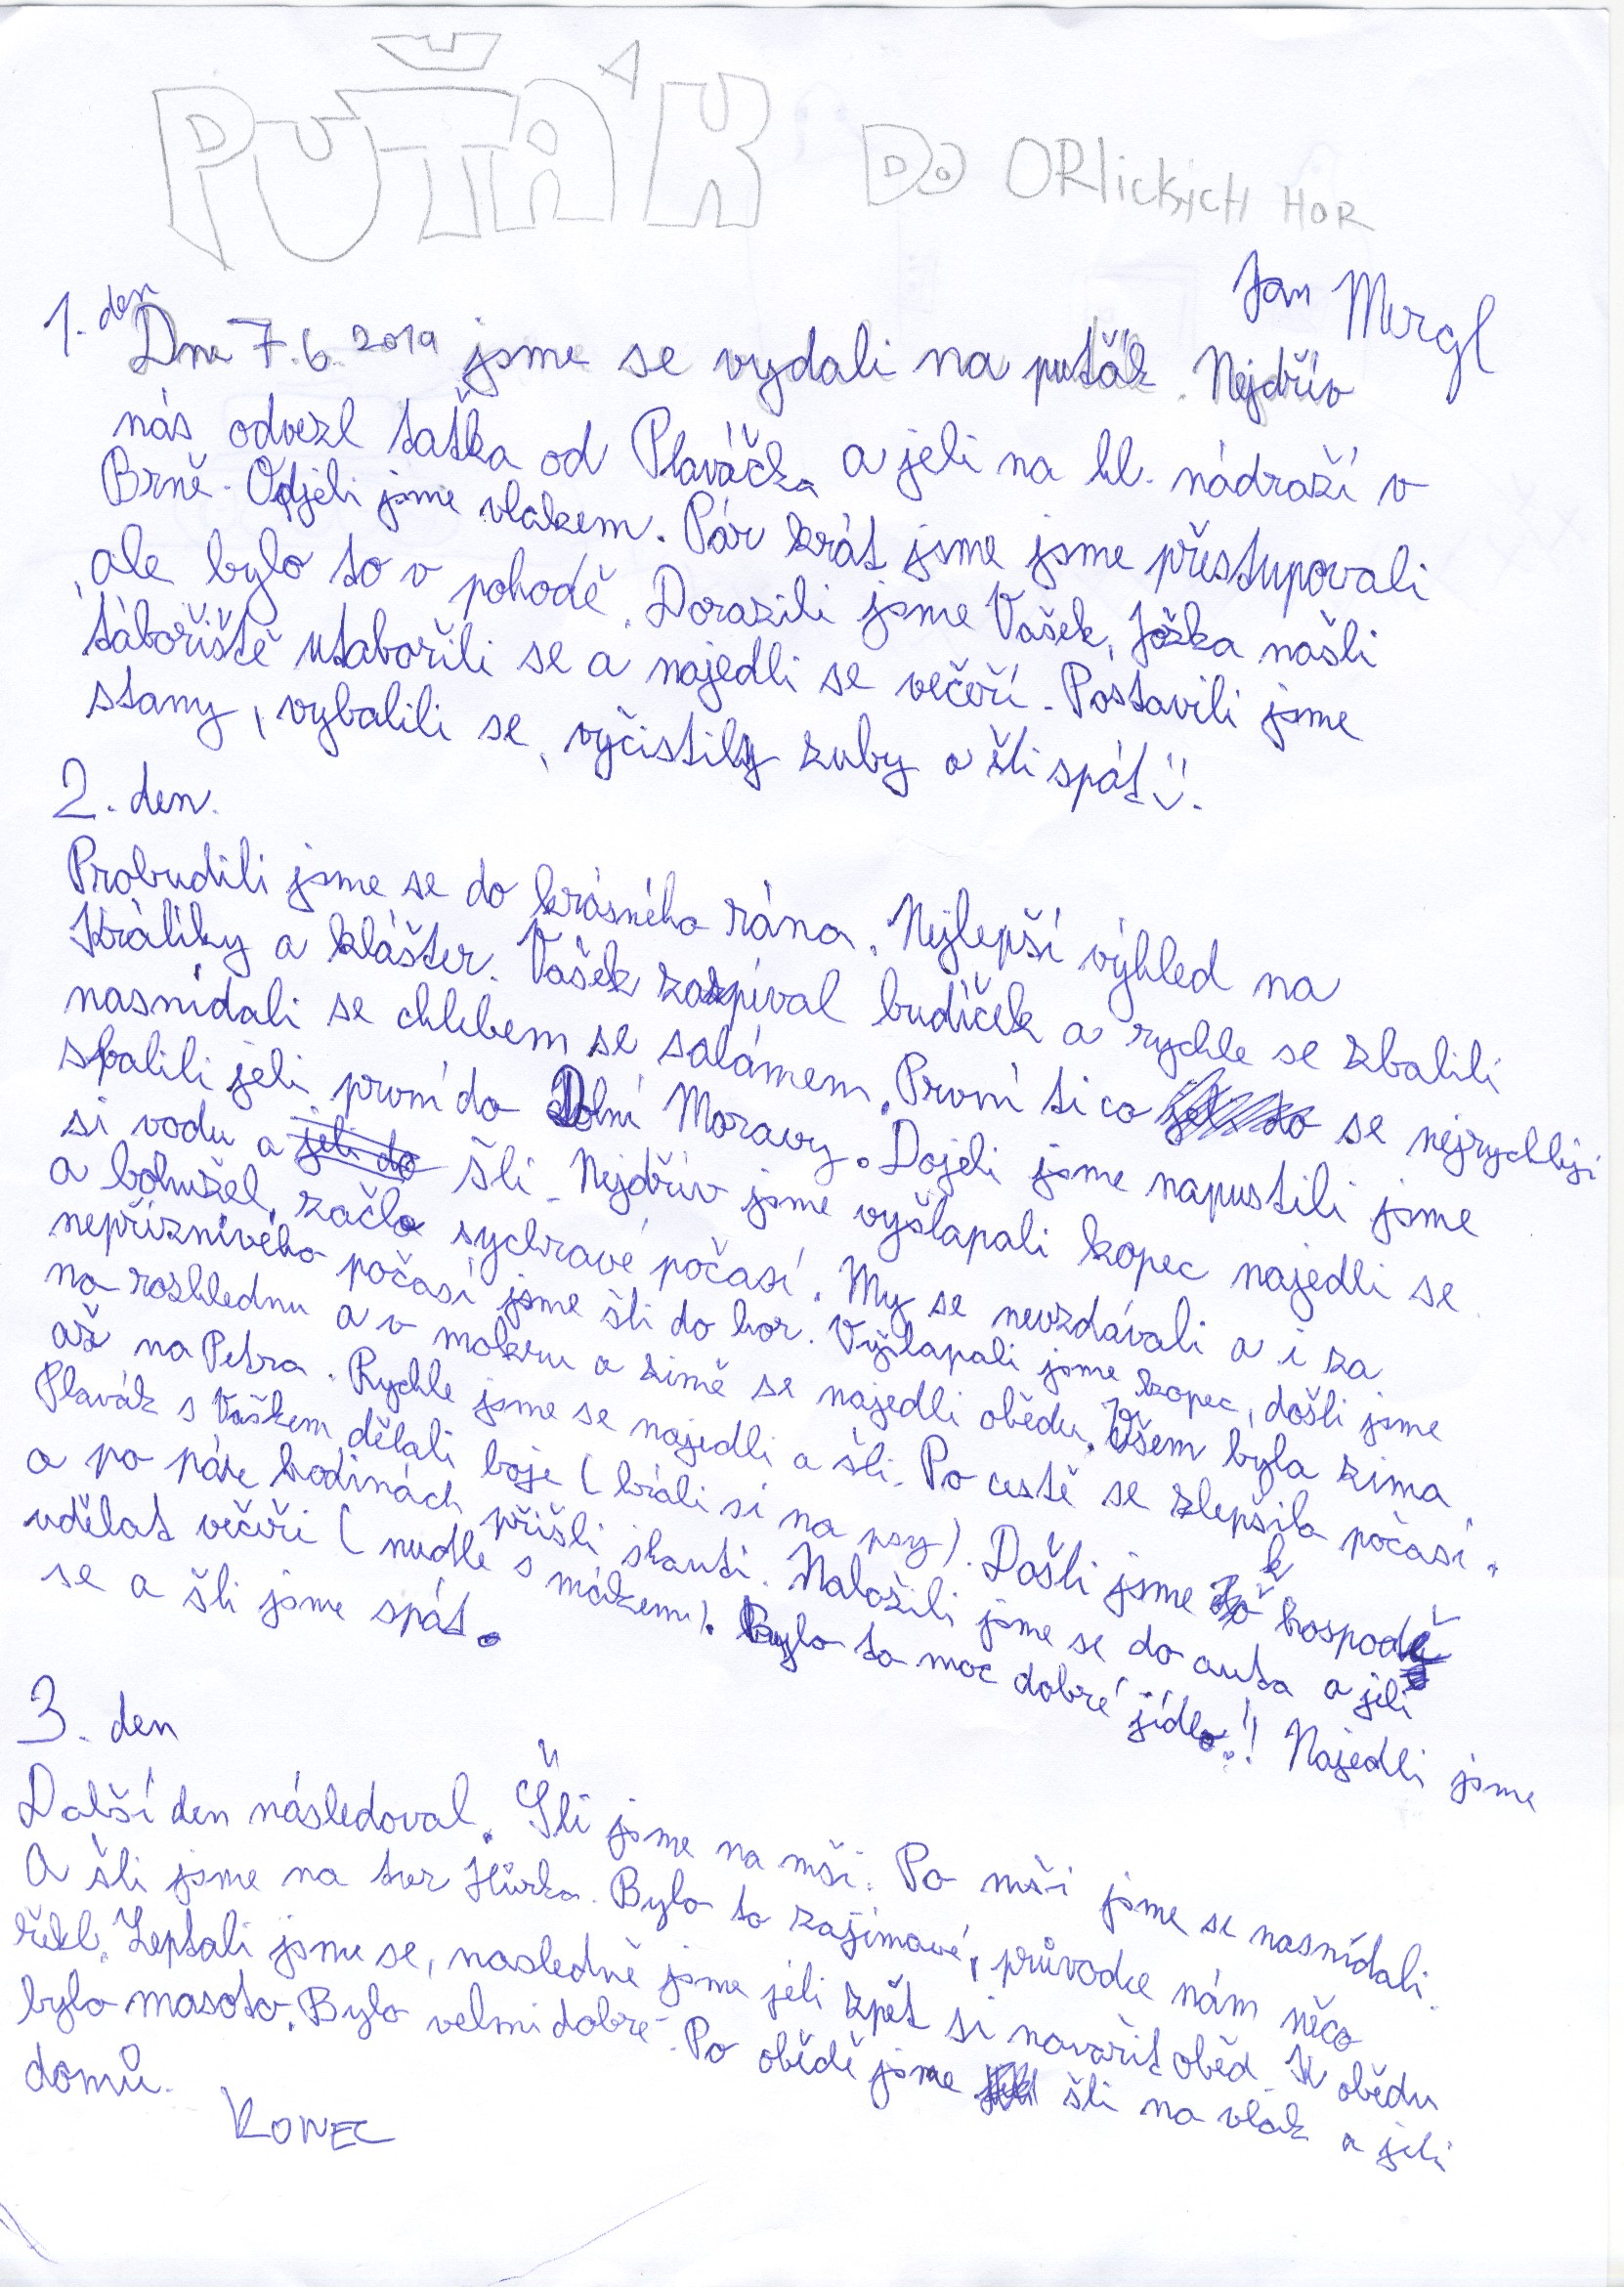 PUŤÁK DO ORlickýCH HOR
Jan Mergl
1. den
Dne 7.6.2019 jsme se vydali na puťák. Nejdřív
nás odvezl taťka od Plaváčka a jeli na hl. nádraží v
Brně. Odjeli jsme vlakem. Pár krát jsme jsme přestupovali
ale bylo to v pohodě. Dorazili jsme Vašek, Jožka našli
tábořiště utabořili se a najedli se večeří. Postavili jsme
stany, vybalili se, vyčistily zuby a šli spát.
2. den.
Probudili jsme se do krásného rána. Nejlepší výhled na
Králíky a klášter. Vašek zazpíval budíček a rychle se zbalili
nasnídali se chlebem se salámem. První ti co se nejrychleji
sbalili jeli první do Dolní Moravy. Dojeli jsme napustili jsme
si vodu a jeli do šli. Nejdřív jsme vyšlapali kopec najedli se
a bohužel, začlo sychravé počasí. My se nevzdávali a i za
nepříznivého počasí jsme šli do hor. Vyšlapali jsme kopec, došli jsme
na rozhlednu a v mokru a zimě se najedli obědu. Všem byla zima
až na Petra. Rychle jsme se najedli a šli. Po cestě se zlepšilo počasí.
Plavák s Vaškem dělali boje (hráli si na psy). Došli jsme k hospodě
a po páre hodinách přišli skauti. Naložili jsme se do auta a jeli
udělat večeři (nudle s mákem). Bylo to moc dobré jídlo!! Najedli jsme
se a šli jsme spát.
3. den
Další den následoval. Šli jsme na mši. Po mši jsme se nasnídali.
A šli jsme na tvrz Hůrka. Bylo to zajímavé, průvodce nám něco
řekl. Zeptali jsme se, nasledně jsme jeli zpět si navařit oběd. K obědu
bylo masoto. Bylo velmi dobré. Po obědě jsme šli na vlak a jeli
domů.
KONEC